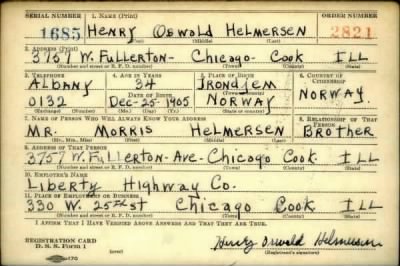 SERIAL NUMBER 1. NAME (Print) ORDER NUMBER
1685 HENRY OSWALD HELMERSEN 2821
(First) (Middle) (Last)
2. ADDRESS (Print)
3757 W. FULLERTON- CHICAGO- COOK ILL
(Number and street or R. F. D. number) (Town) (County) (State)
3. TELEPHONE 4. AGE IN YEARS 5. PLACE OF BIRTH 6. COUNTRY OF CITIZENSHIP
ALBANY 34 TRONDJEM NORWAY
DATE OF BIRTH (Town or county)
0132 DEC-25-1905 NORWAY
(Exchange) (Number) (Mo.) (Day) (Yr.) (State or country)
7. NAME OF PERSON WHO WILL ALWAYS KNOW YOUR ADDRESS 8. RELATIONSHIP OF THAT PERSON
MR. MORRIS HELMERSEN BROTHER
(Mr., Mrs., Miss) (First) (Middle) (Last)
9. ADDRESS OF THAT PERSON
3757 W. FULLERTON-AVE-CHICAGO COOK. ILL
(Number and street or R. F. D. number) (Town) (County) (State)
10. EMPLOYER'S NAME
LIBERTY HIGHWAY CO.
11. PLACE OF EMPLOYMENT OR BUSINESS
330 W. 25TH ST CHICAGO COOK ILL
(Number and street or R. F. D. number) (Town) (County) (State)
I AFFIRM THAT I HAVE VERIFIED ABOVE ANSWERS AND THAT THEY ARE TRUE.
REGISTRATION CARD
D. S. S. Form 1 Henry Oswald Helmersen
(Registrant's signature)